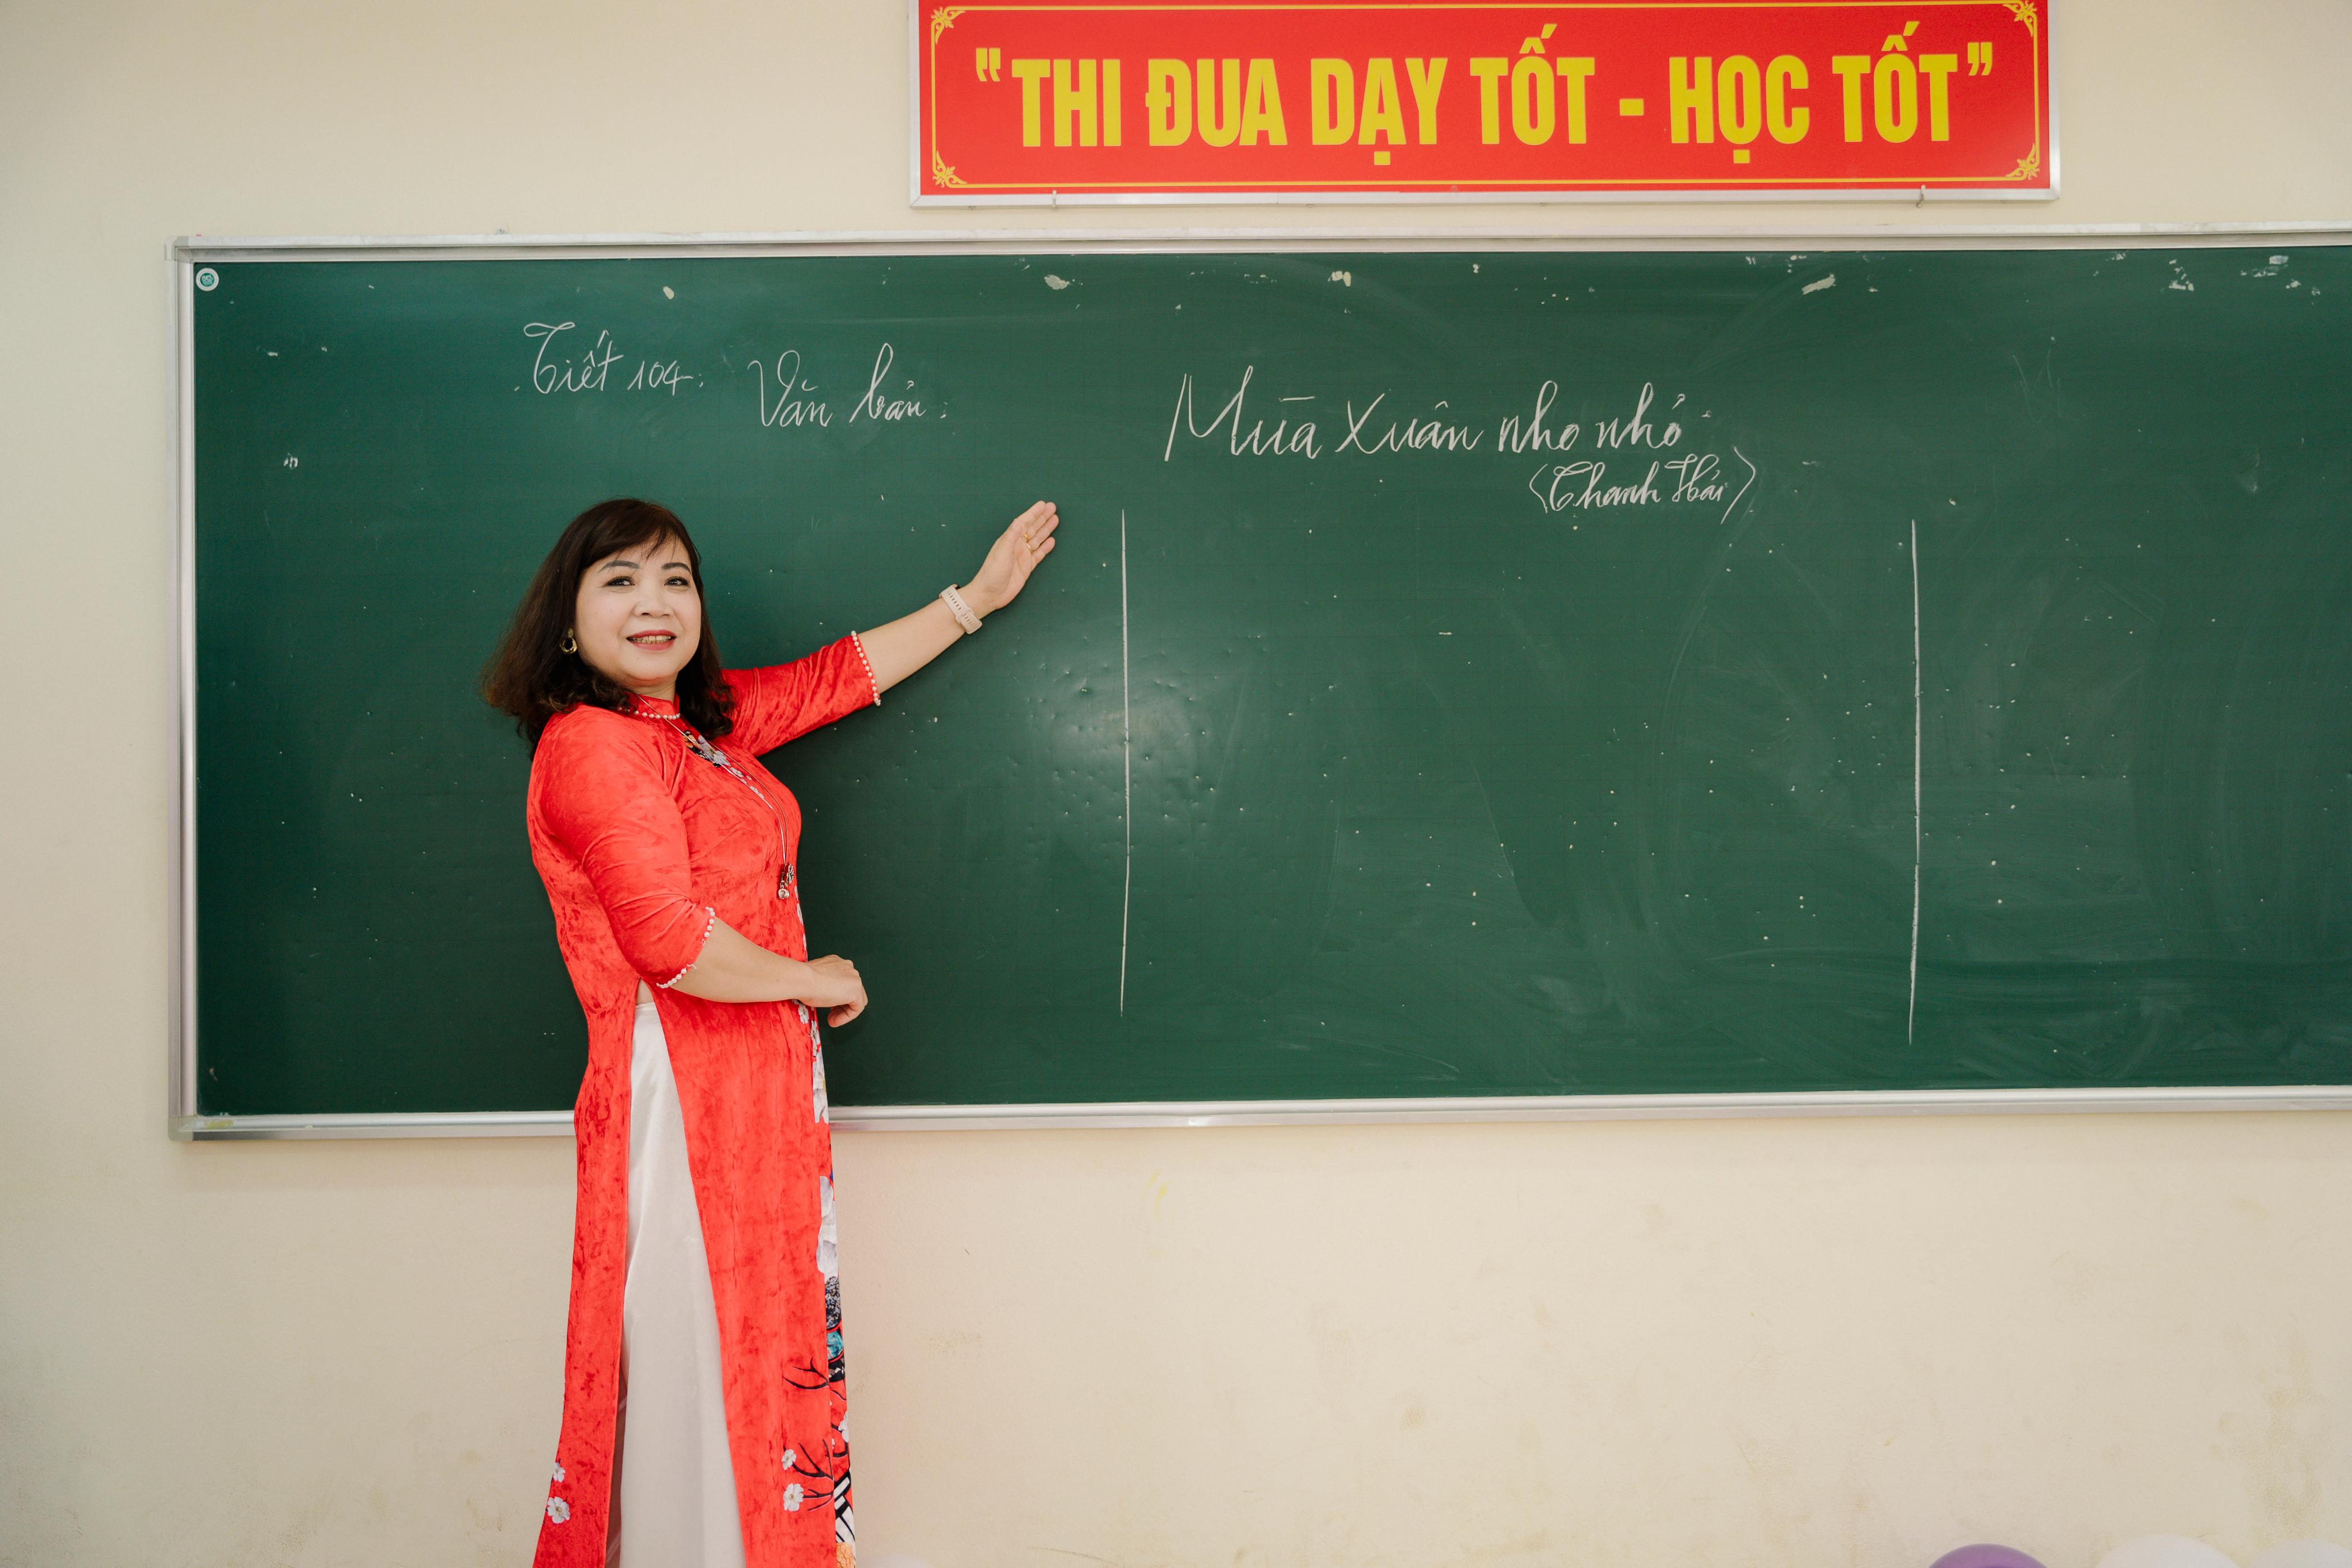 "THI ĐUA DẠY TỐT - HỌC TỐT"
Tiết 104: Văn bản: Mùa Xuân nho nhỏ
(Thanh Hải)